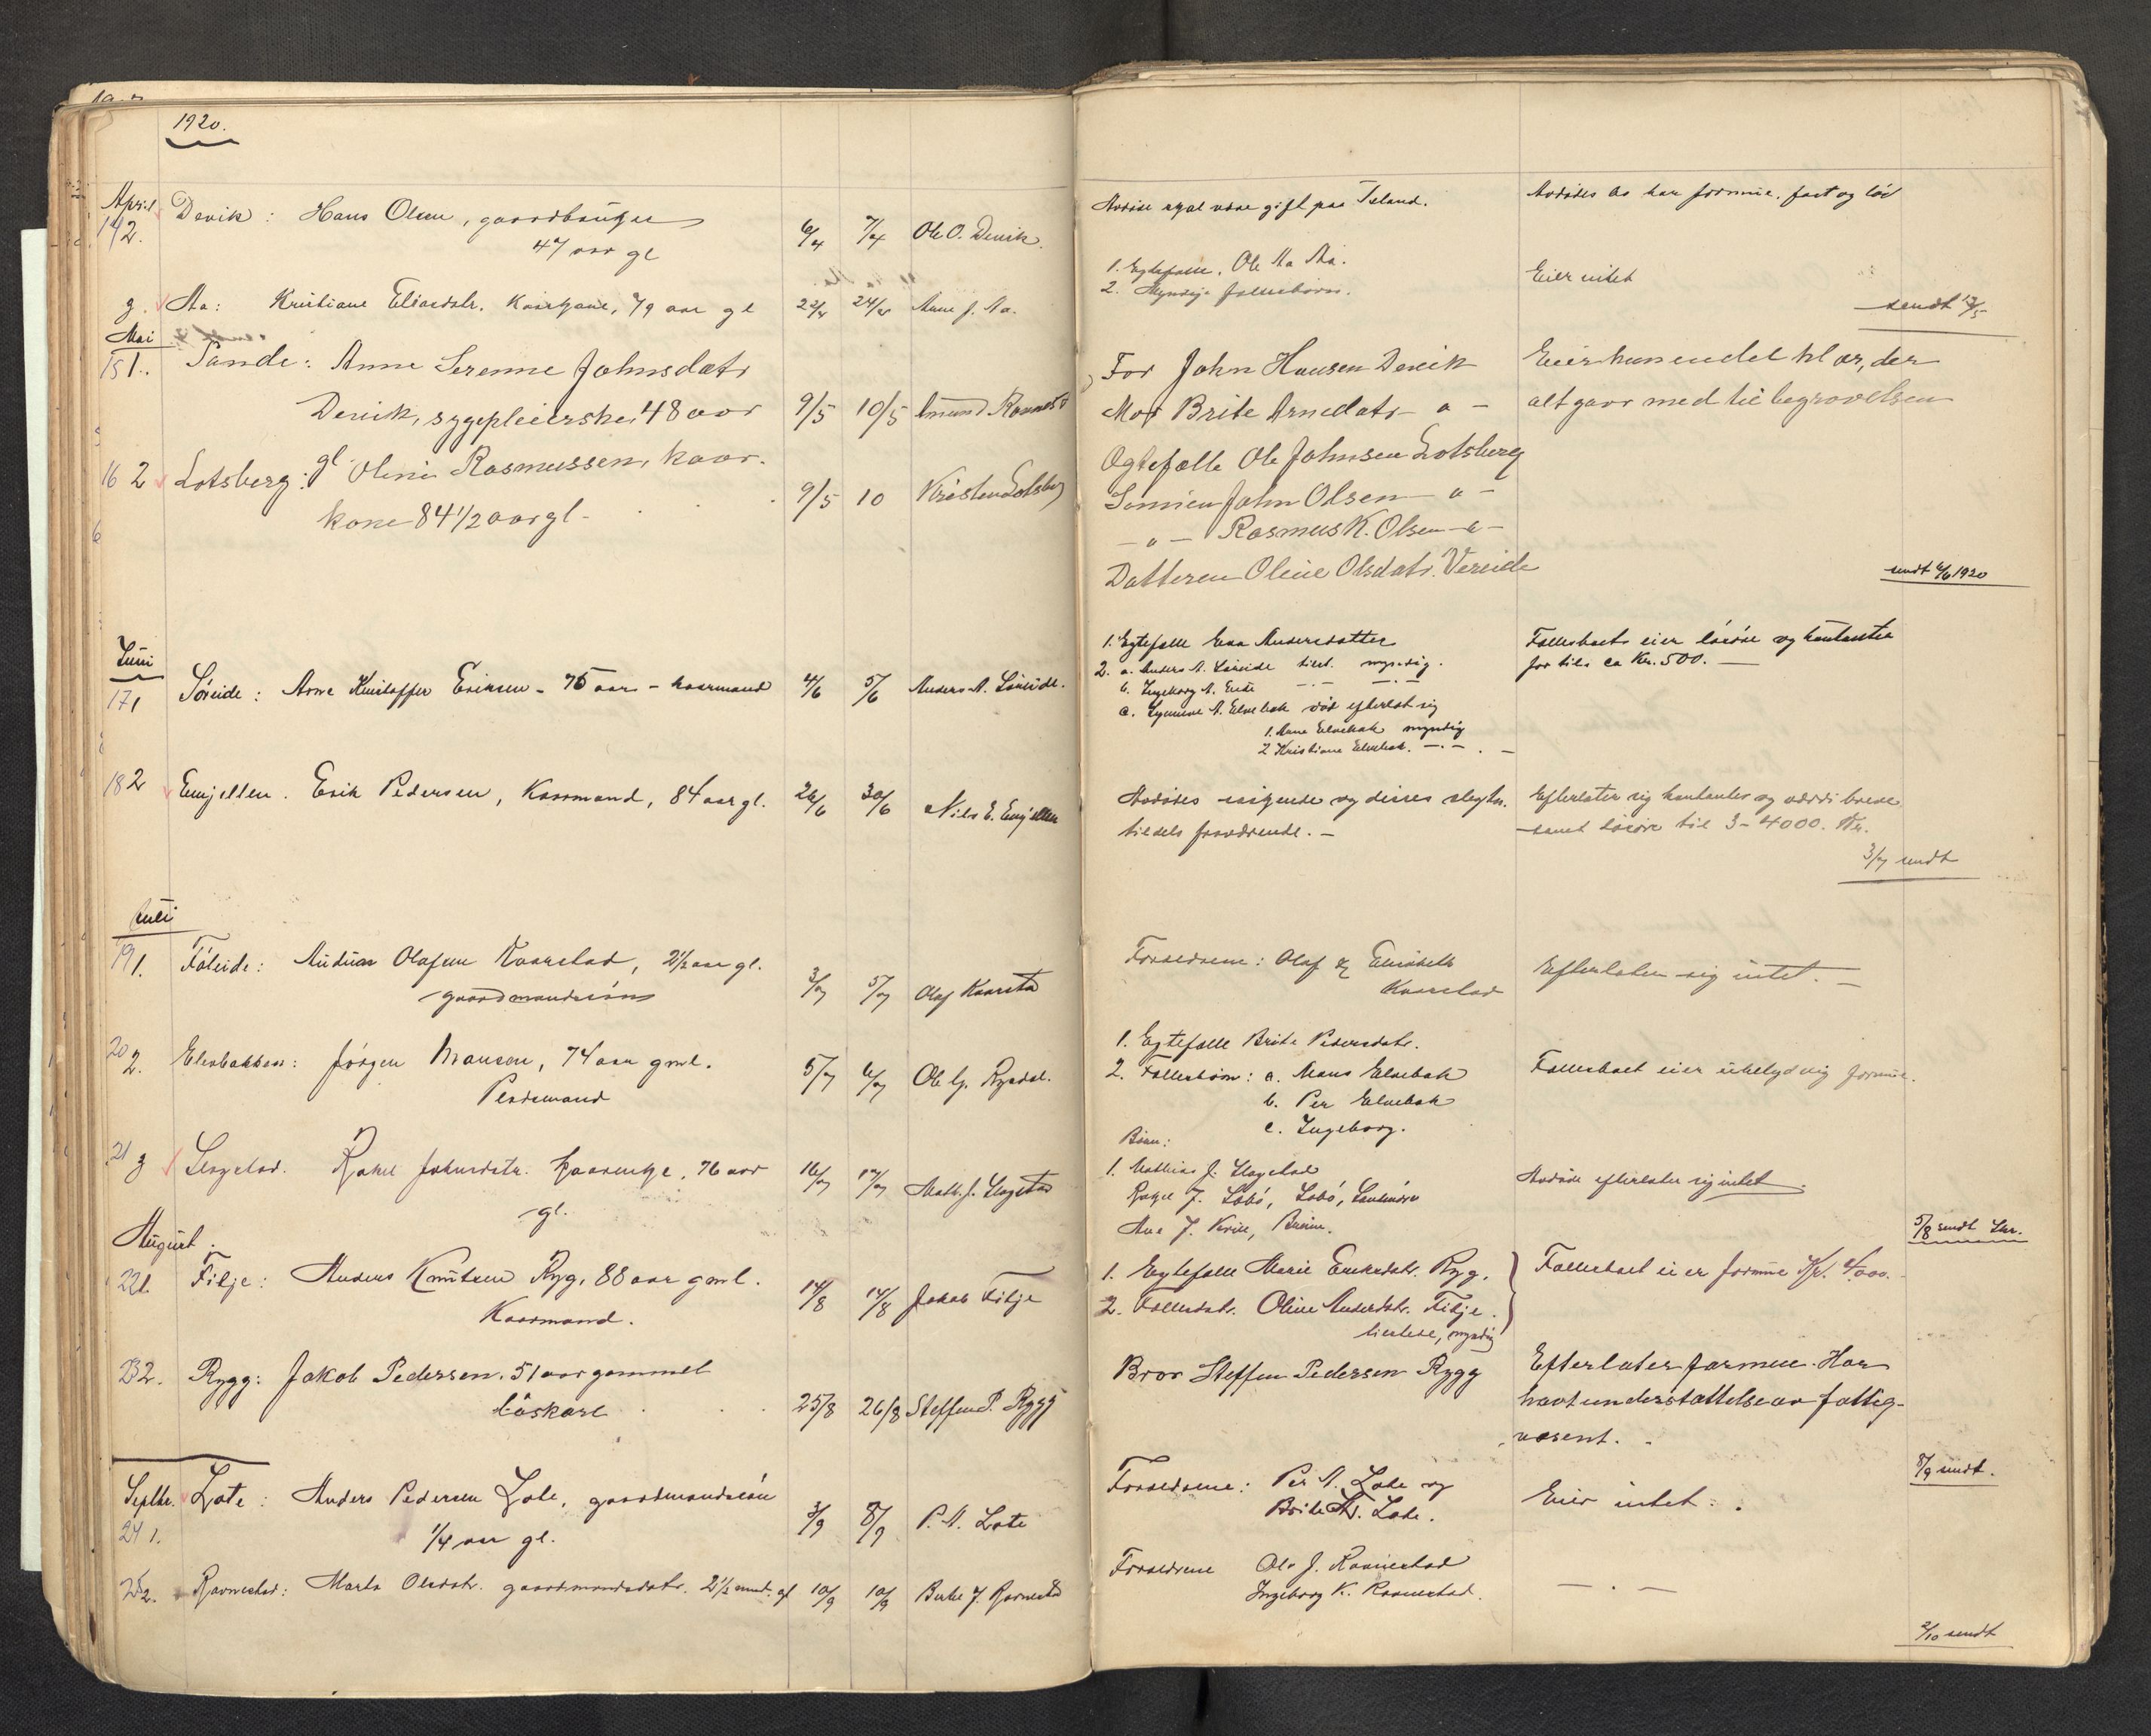 1920.
April
142. Devik: Hans Olsen, gaardbruger
47 aar gl
6/4 7/4 Ole O. Devik.
Avdøde skal være gift paa Island.
Avdødes bo har formue. fast og løs
3. Aa: Kristiane Eliasdtr. 79 aar gl
22/4 24/4 Anne J. Aa.
1. Egtefælle. Ole Aa.
2. Myndige fællesbørn.
Eier intet
sendt
Mai
151. Sande: Anne Serenne Johnsdatr
Devik, sygepleierske, 48 aar
gl.
9/5 10/5
Far John Hansen Devik
Mor Brite Arnedatr - " -
Eier kun endel klær, der
alt gaar med til begravelsen
16 2 Lotsberg: Oline Rasmussen, kaar-
kone 84 1/2 aar gl -
9/5 10 Kristen Lotsberg
Ægtefælle Ole Johnsen Lotsberg
Sønnen John Olsen - " -
- " - Rasmus K. Olsen - " -
Datteren Oline Olsdatr. Vereide
sendt 4/6 1920
Juni
171 Søreide: Arne Kristoffer Eriksen - 75 aar - kaarmand
4/6 5/6 Anders A. Søreide.
1. Egtefælle Ena Andersdatter
2. a. Anders A. Søreide tilst. myndig.
b. Ingeborg A. Eide -.- -.-
c. A. Elvebak død efterlot sig
1. Anna Elvebak myndig
2 Kristiane Elvebak. -.-.-
Fællesboet eier løsøre og kontanter
for tils ca Kr. 500. -
182 Emjellen. Erik Pedersen, Kaarmand, 84 aar gl.
26/6 30/6 Nils E. Emjellen
Avdødes søskende og disses slegtn.
tildels fraværende. -
Efterlater sig kontanter og værdibreve
samt løsøre til 3-4000. Kr.
3/7 sendt
Juli
191. Føleide: Olafsen Kaarstad, 2 1/2 aar gl.
gaardmandssøn
3/7 5/7 Olaf Kaarstad
Forældrene: Olaf & Elisabeth
Kaarstad
Efterlater sig intet. -
20 2. Elvebakken: Jørgen Monsen, 74 aar gml.
Pladsmand
5/7 6/7 Ole G. Rysdal.
1. Egtefælle Brite Pedersdatr.
2. Fællesbørn: a. Mons Elvebak
b. Per Elvebak
c. Ingeborg.
Fællesboet eier ubetydelig formue.
21 3 Slagstad. Rakel Johnsdtr. kaarenke, 76 aar
gl.
16/7 17/7 Math. J. Slagstad
Børn:
1. Mathias J. Slagstad
Rakel J. Løbø, Løbø, Søndmøre
Ane J. Breim.
Avdøde efterlater sig intet.
5/8 sendt Skr.
August.
221. Filje: Anders Knutsen Ryg, 88 aar gml.
Kaarmand.
14/8 14/8 Jakob Filje
1. Egtefælle Marie Eriksdatr. Ryg.
2. Fællesdatr. Oline Andersdtr. Filje.
tilstede, myndig
Fællesboet eier formue Kr. 4000. -
232. Rygg: Jakob Pedersen. 51 aar gammel
løskarl
25/8 26/8 Steffen P. Rygg
Bror Steffen Pedersen Rygg
Efterlater formue. Har
havt understøttelse av fattig-
væsent.
8/9 sendt.
Septbr.
24 1. Lote: Anders Pedersen Lote, gaardmandssøn
1/4 aar gl.
3/9 8/9 P. A. Lote
Forældrene: Per A. Lote og
Brite Lote.
Eier intet.
252. Ravnestad: Marta Olsdatr. gaardmandsdatr. 2 1/2 mnd. gl
10/9 10/9 Berte J. Ravnestad
Forældrene Ole J. Ravnestad
Ingeborg K. Ravnestad.
- . -
2/10 sendt